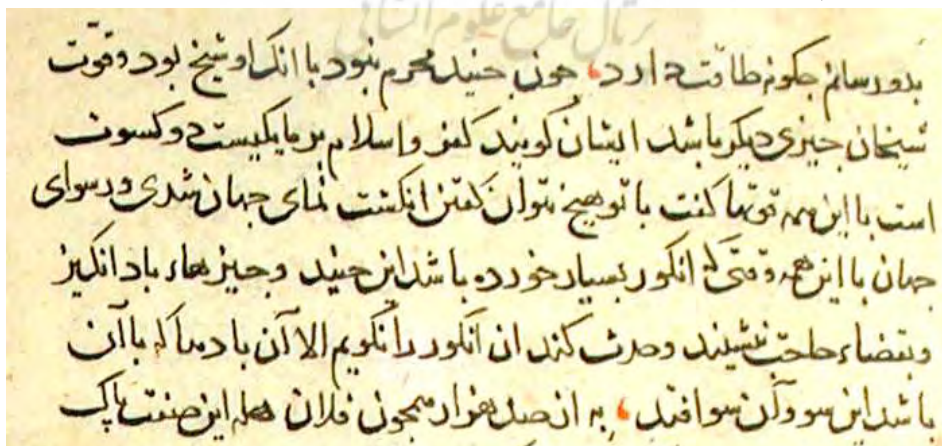 پرتال جامع علوم انسانی
بدو رسانم جکونه طاقت دارد، جون جنید محرم نبود با انک او شیخ بود و قوت
شیخان جیزی دیکر باشد ایشان کویند کفر و اسلام بر ما یکیست دو کسوت
است با این همه قوتها کفت با تو هیج نتوان کفتن انکشت نمای جهان شدی و رسوای
جهان با این همه وقتی که انکور بسیار خورده باشد این جنید و جیزهاء باد انکیز
و بقضاء حاجت بنشیند و حدث کند ان انکور را نکویم الا آن بادها که با آن
باشد این سو و آن سو افتد، به از صد هزار همجون فلان هله این صفت پاک